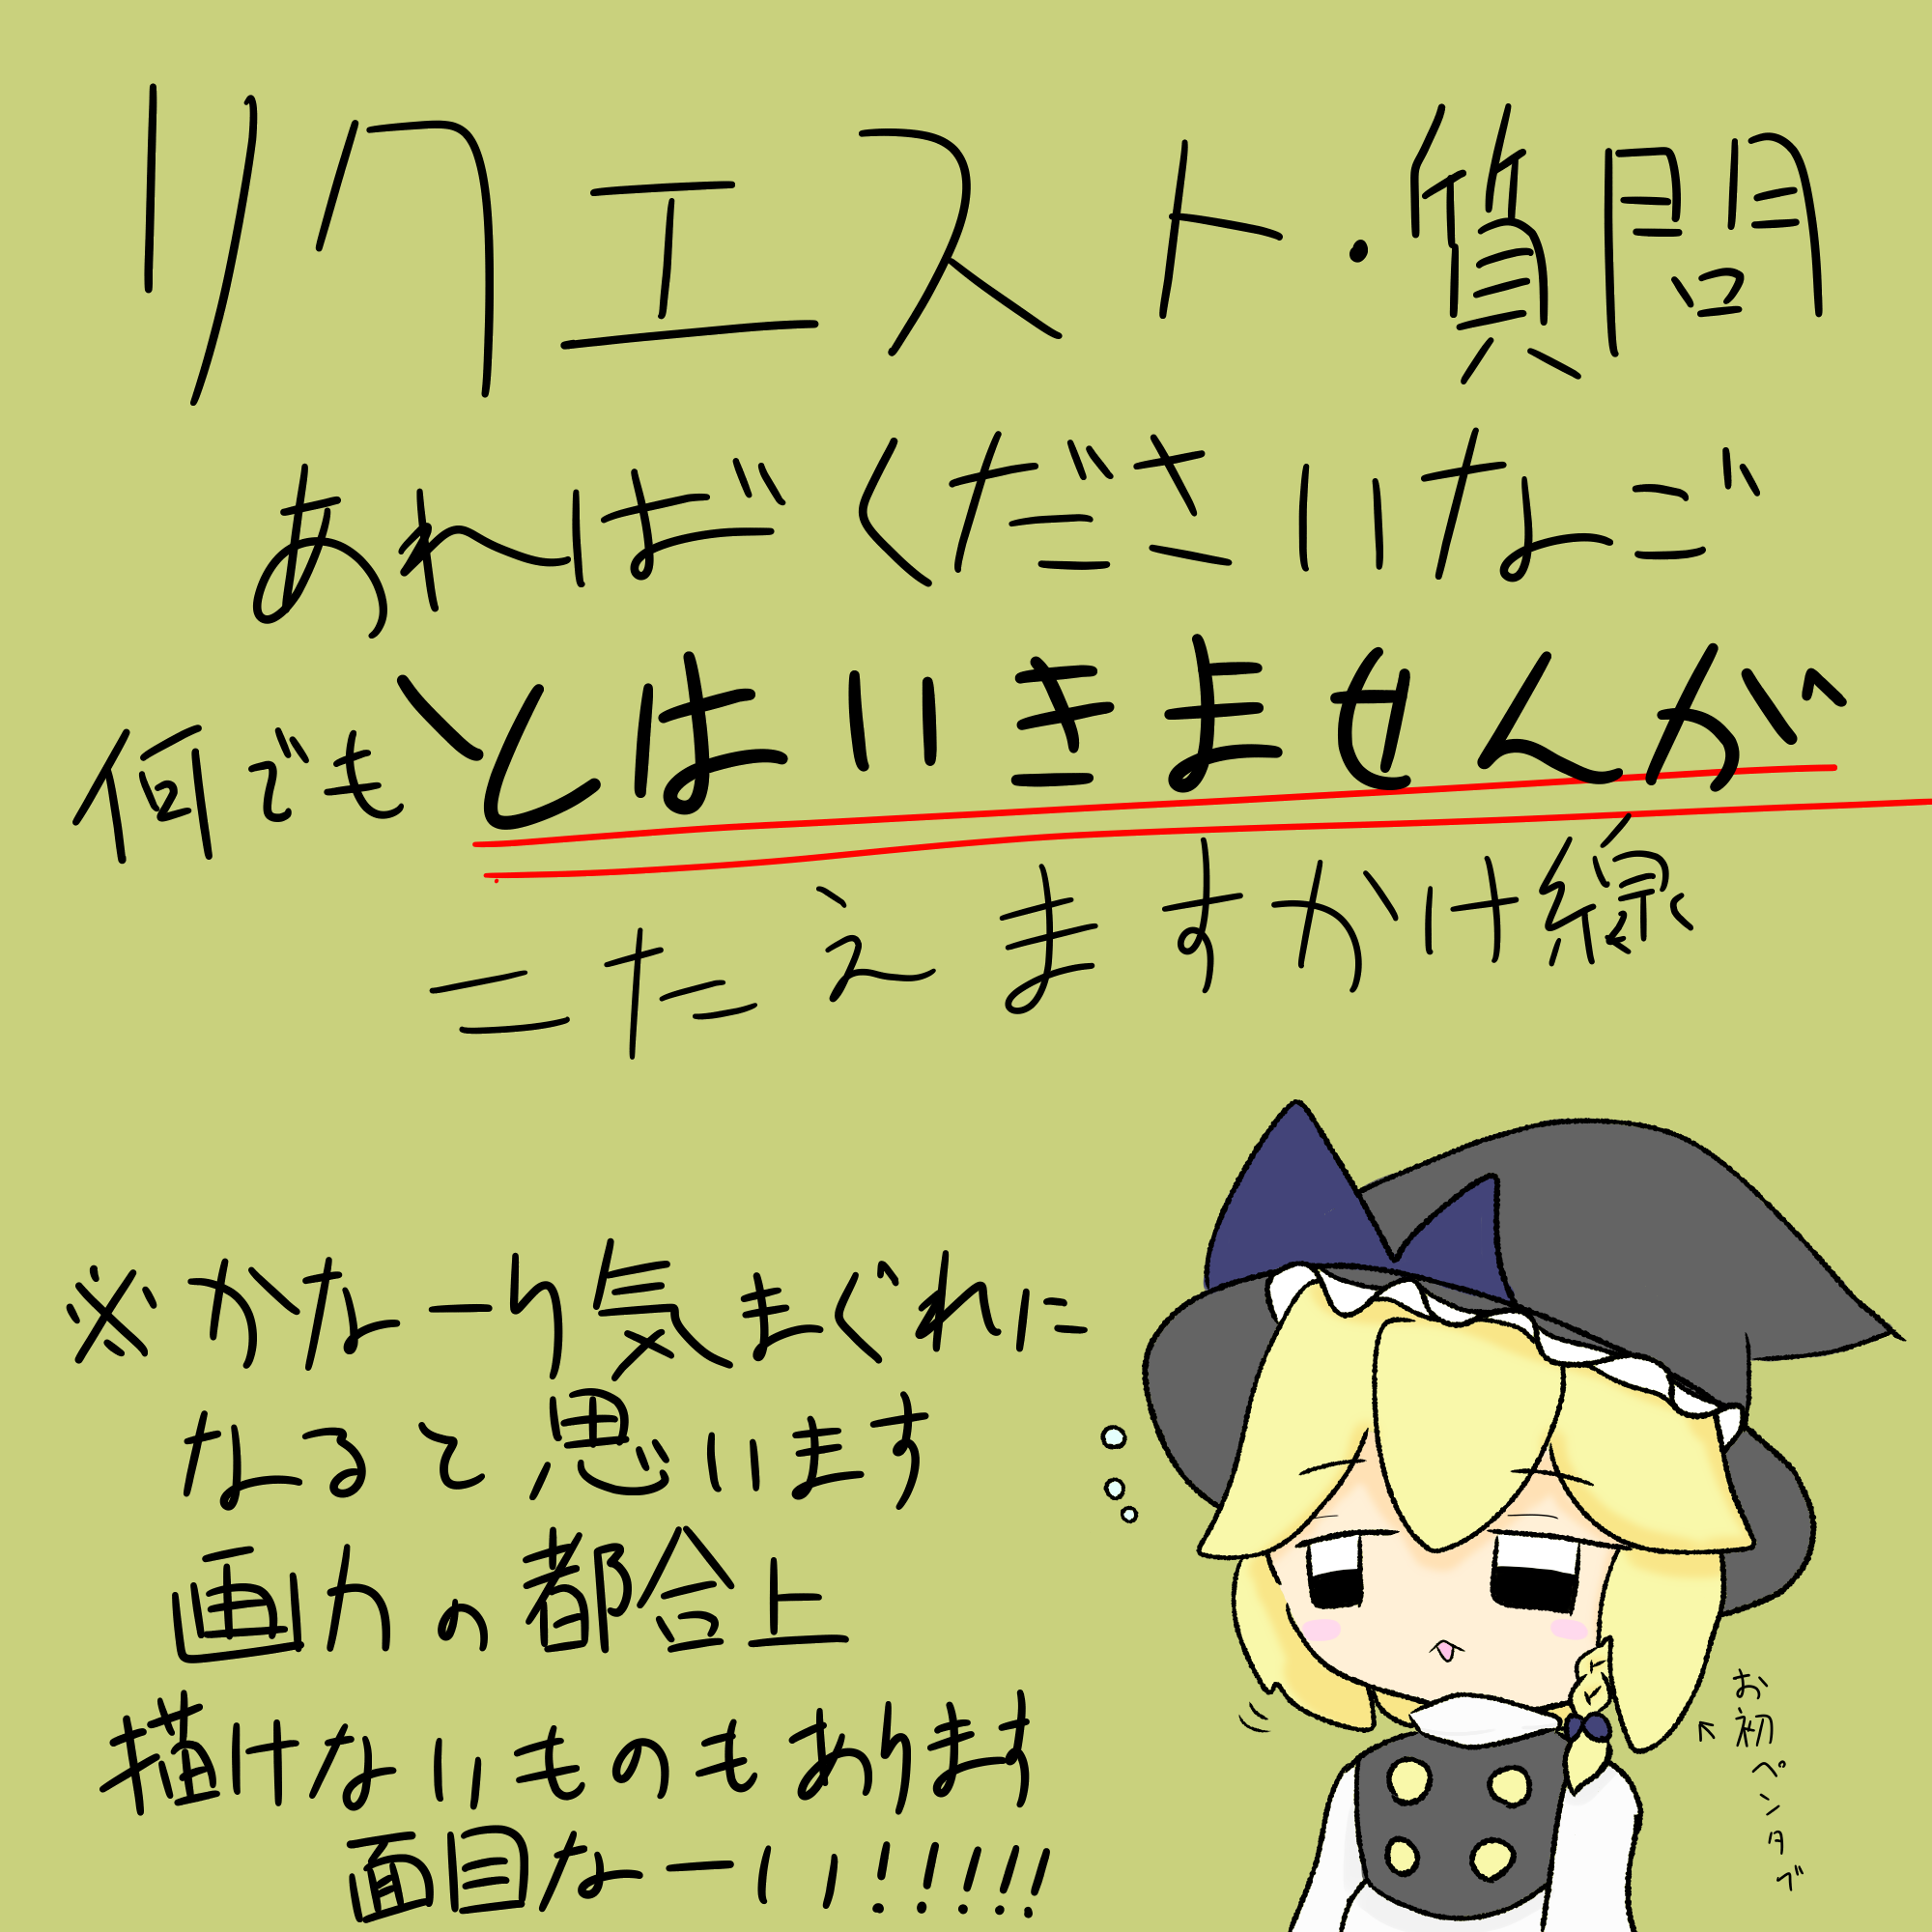 リクエスト・質問
あればくださいなこ゛
何でもとはいきませんが
こたえますかけ線
※かなーり気まぐれに
なると思います
画力の都合上
描けないものもあります
面目なーい!!!!!
お初ペンタブ